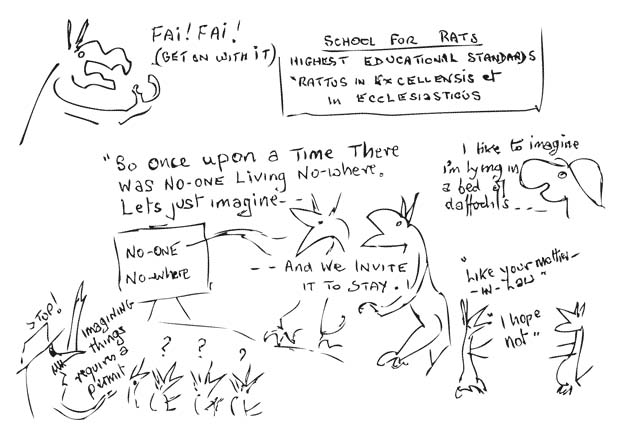 FAI! FAI!
(GET ON WITH IT)
SCHOOL FOR RATS
HIGHEST EDUCATIONAL STANDARDS
"RATTUS IN EXCELLENSIS et
IN ECCLESIASTICUS
"So once upon a Time There
WAS NO-ONE Living NO-Where.
Lets just imagine- - -
I like to imagine
i'm lying in
a bed of
daffodils - - -
NO-ONE
NO-where
- - And We INVITE
IT TO STAY . !
"Like your mother-
-in-Law"
"I hope
not"
STOP!
imagining
things
requires a
permit
? ? ? ?